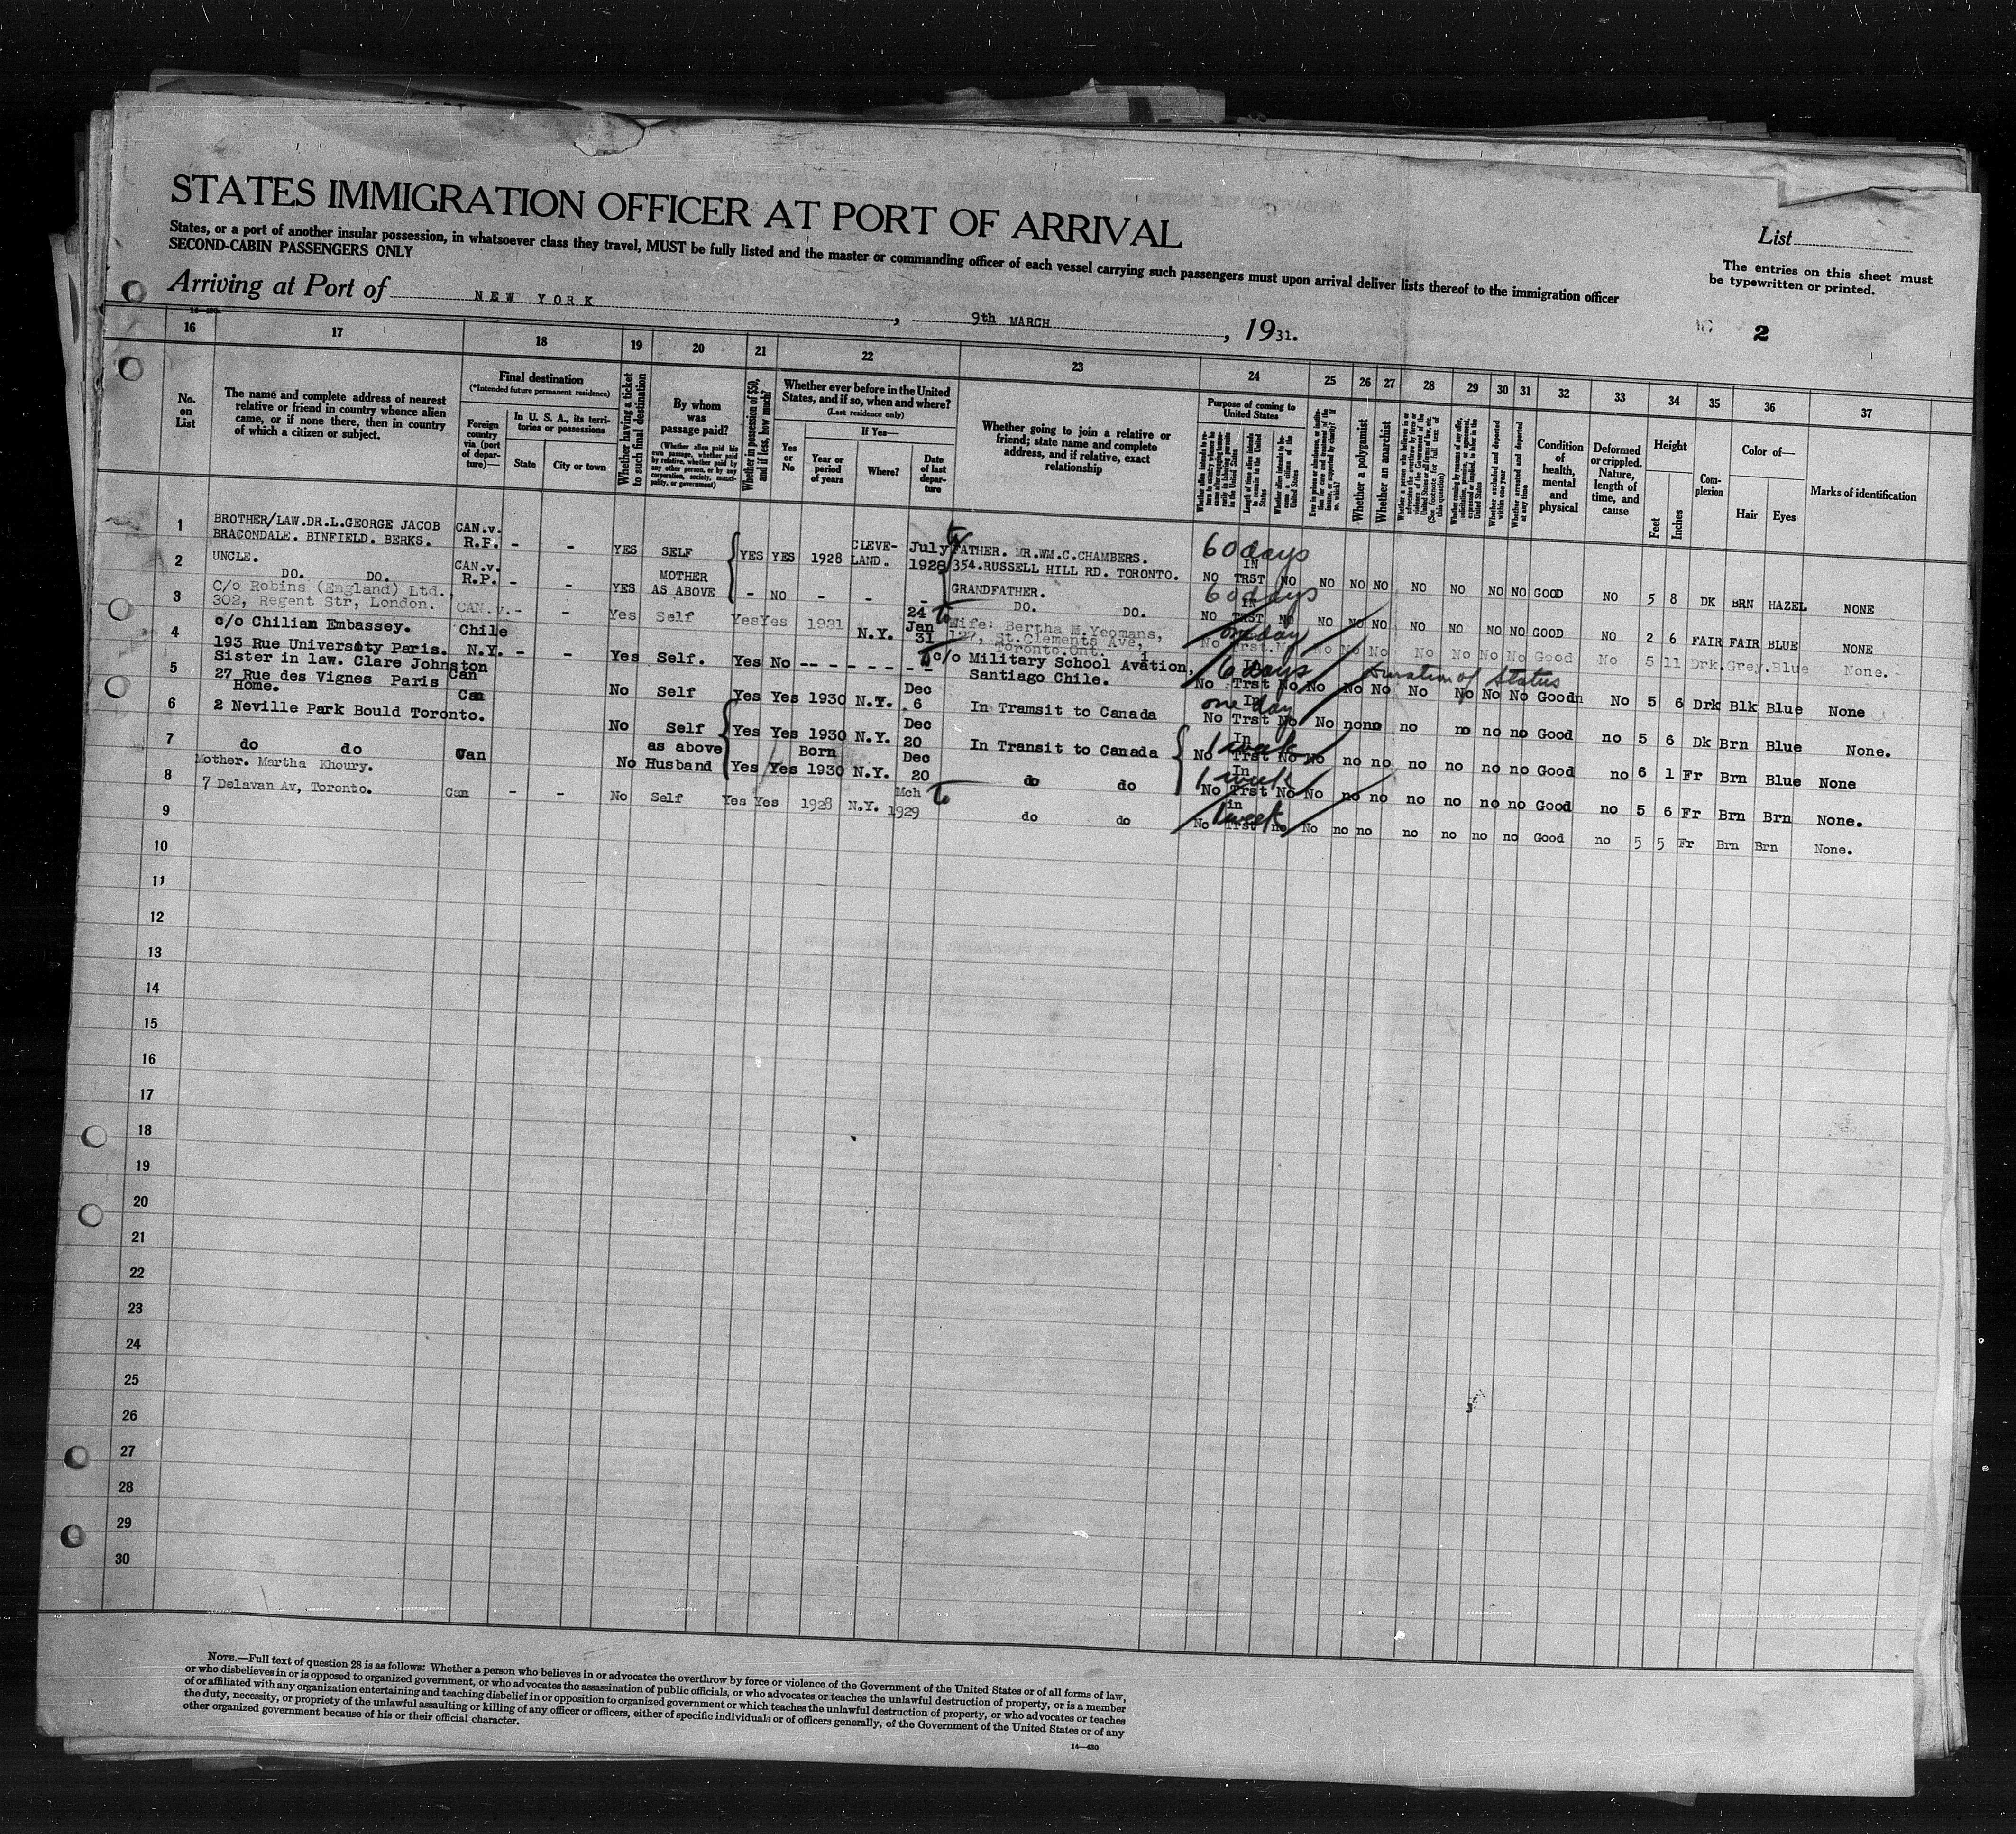 STATES IMMIGRATION OFFICER AT PORT OF ARRIVAL
States, or a port of another insular possession, in whatsoever class they travel, MUST be fully listed and the master or commanding officer of each vessel carrying such passengers must upon arrival deliver lists thereof to the immigration officer
SECOND-CABIN PASSENGERS ONLY
List
The entries on this sheet must
be typewritten or printed.
Arriving at Port of NEW YORK, 9th MARCH, 1931.
2
16 17 18 19 20 21 22 23 24 25 26 27 28 29 30 31 32 33 34 35 36 37
No. on List
The name and complete address of nearest
relative or friend in country whence alien
came, or if none there, then in country
of which a citizen or subject.
Final destination
(*Intended future permanent residence)
Foreign country via (port of departure)—
In U. S. A., its territories or possessions
State
City or town
Whether having a ticket to such final destination
By whom was passage paid?
(Whether alien paid his own passage, whether paid by relative, whether paid by any other person, or by any corporation, society, municipality, or government)
Whether in possession of $50, and if less, how much?
Whether ever before in the United
States, and if so, when and where?
(Last residence only)
Yes or No
If Yes—
Year or period of years
Where?
Date of last departure
Whether going to join a relative or
friend; state name and complete
address, and if relative, exact
relationship
Purpose of coming to
United States
Length of time alien intends to remain in the United States
Whether alien intends to become a citizen of the United States
Whether a polygamist
Whether an anarchist
(See footnote for full text of this question)
Whether excluded and deported within one year
Whether arrested and deported at any time
Condition of health, mental and physical
Deformed or crippled. Nature, length of time, and cause
Height
Feet
Inches
Complexion
Color of—
Hair
Eyes
Marks of identification
1 BROTHER/LAW.DR.L.GEORGE JACOB
BRACONDALE. BINFIELD. BERKS. CAN.v. R.P. - - YES SELF YES YES 1928 CLEVE-LAND. July 1928 FATHER. MR.WM.C.CHAMBERS.
354.RUSSELL HILL RD. TORONTO. 60 days NO IN TRST NO NO NO NO NO NO NO NO GOOD NO 5 8 DK BRN HAZEL NONE
2 UNCLE.
DO. DO. CAN.v. R.P. - - YES MOTHER AS ABOVE - NO - - - GRANDFATHER.
DO. DO. 60 days NO IN TRST NO NO NO NO NO NO NO NO GOOD NO 2 6 FAIR FAIR BLUE NONE
3 C/o Robins (England) Ltd.,
302, Regent Str, London. CAN.v. - - Yes Self Yes Yes 1931 N.Y. 24 Jan 31 Wife: Bertha M.Yeomans,
127, St.Clements Ave,
Toronto.Ont. one day No Trst. No No No No No No No No Good No 5 11 Drk. Grey. Blue None.
4 c/o Chilian Embassey.
193 Rue University Paris. Chile N.Y. - - Yes Self. Yes No -- - - - - - c/o Military School Avation,
Santiago Chile. 6 days Duration of Status No In Trst No No No No No No No No Good No 5 6 Drk Blk Blue None
5 Sister in law. Clare Johnston
27 Rue des Vignes Paris Can No Self Yes Yes 1930 N.Y. Dec 6 In Transit to Canada one day No In Trst No No no no no no no no Good no 5 6 Dk Brn Blue None.
6 Home.
2 Neville Park Bould Toronto. Can No Self Yes Yes 1930 N.Y. Dec 20 In Transit to Canada 1 week No In Trst No No no no no no no no Good no 6 1 Fr Brn Blue None
7 do do Can No as above Husband Yes Yes Born 1930 N.Y. Dec 20 do do 1 week No In Trst No No no no no no no no Good no 5 6 Fr Brn Brn None.
8 Mother. Martha Khoury.
7 Delavan Av, Toronto. Can - - No Self Yes Yes 1928 N.Y. Mch 1929 do do 1 week No in Trst no No no no no no no no Good no 5 5 Fr Brn Brn None.
9
10
11
12
13
14
15
16
17
18
19
20
21
22
23
24
25
26
27
28
29
30
NOTE.—Full text of question 28 is as follows: Whether a person who believes in or advocates the overthrow by force or violence of the Government of the United States or of all forms of law,
or who disbelieves in or is opposed to organized government, or who advocates the assassination of public officials, or who advocates or teaches the unlawful destruction of property, or is a member
of or affiliated with any organization entertaining and teaching disbelief in or opposition to organized government or which teaches the unlawful destruction of property, or who advocates or teaches
the duty, necessity, or propriety of the unlawful assaulting or killing of any officer or officers, either of specific individuals or of officers generally, of the Government of the United States or of any
other organized government because of his or their official character.
14—430